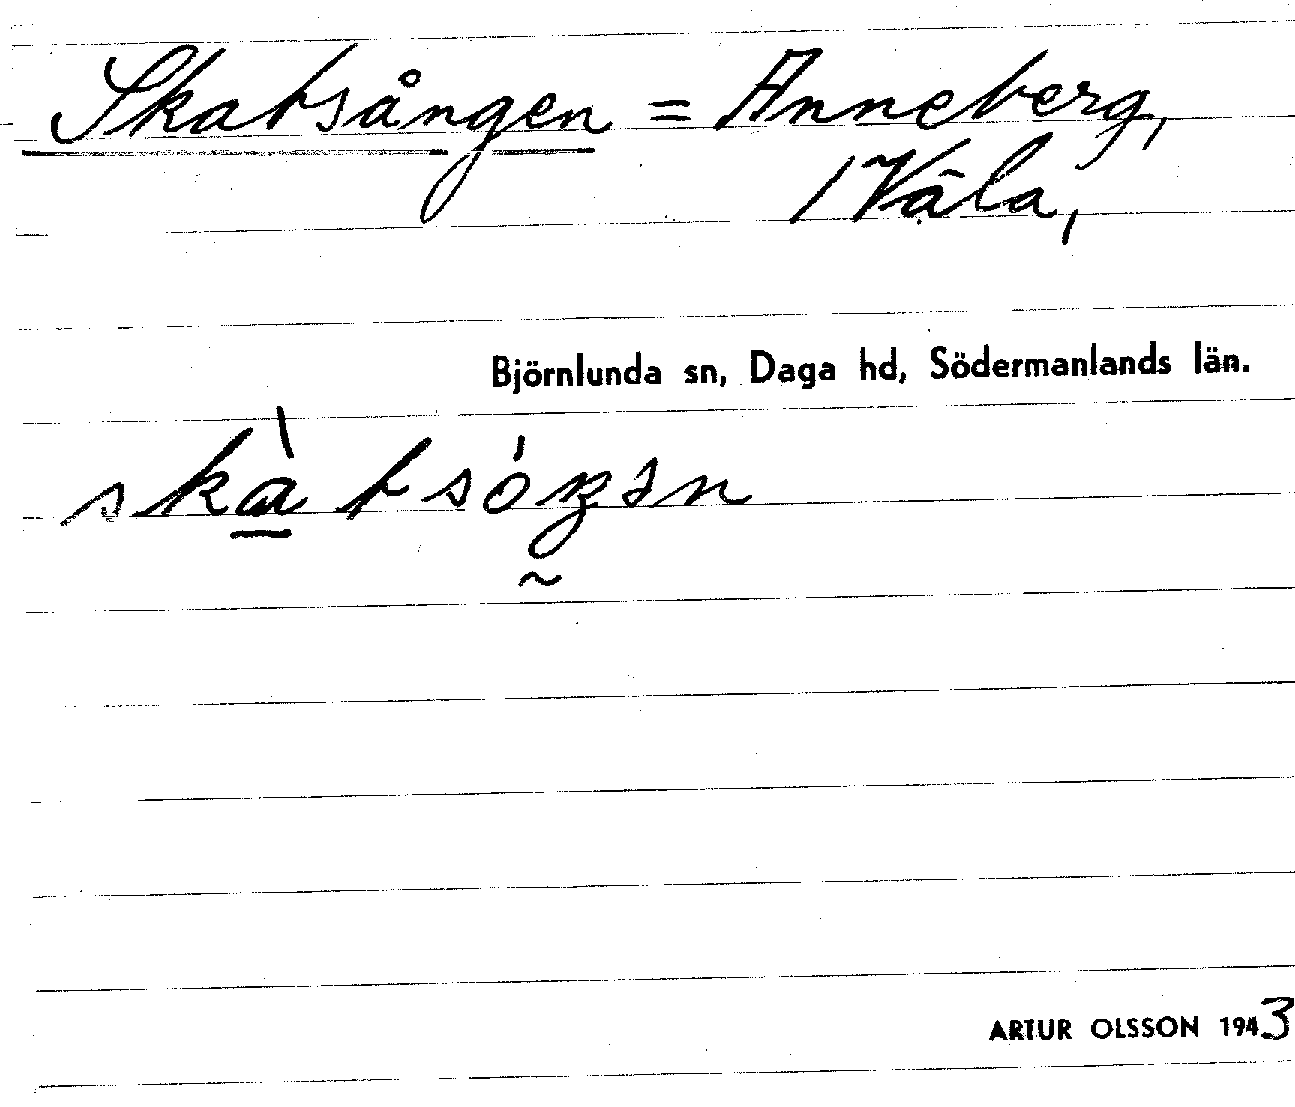 Skatsången = Anneberg,
/ Väla,
Björnlunda sn, Daga hd, Södermanlands län.
ARTUR OLSSON 1943